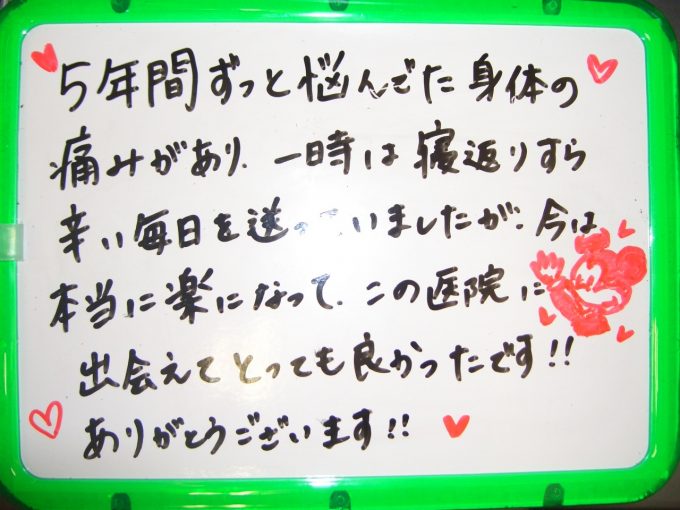 5年間ずっと悩んでた身体の
痛みがあり、一時は寝返りすら
辛い毎日を送っていましたが、今は
本当に楽になって、この医院に
出会えてとっても良かったです!!
ありがとうございます!!